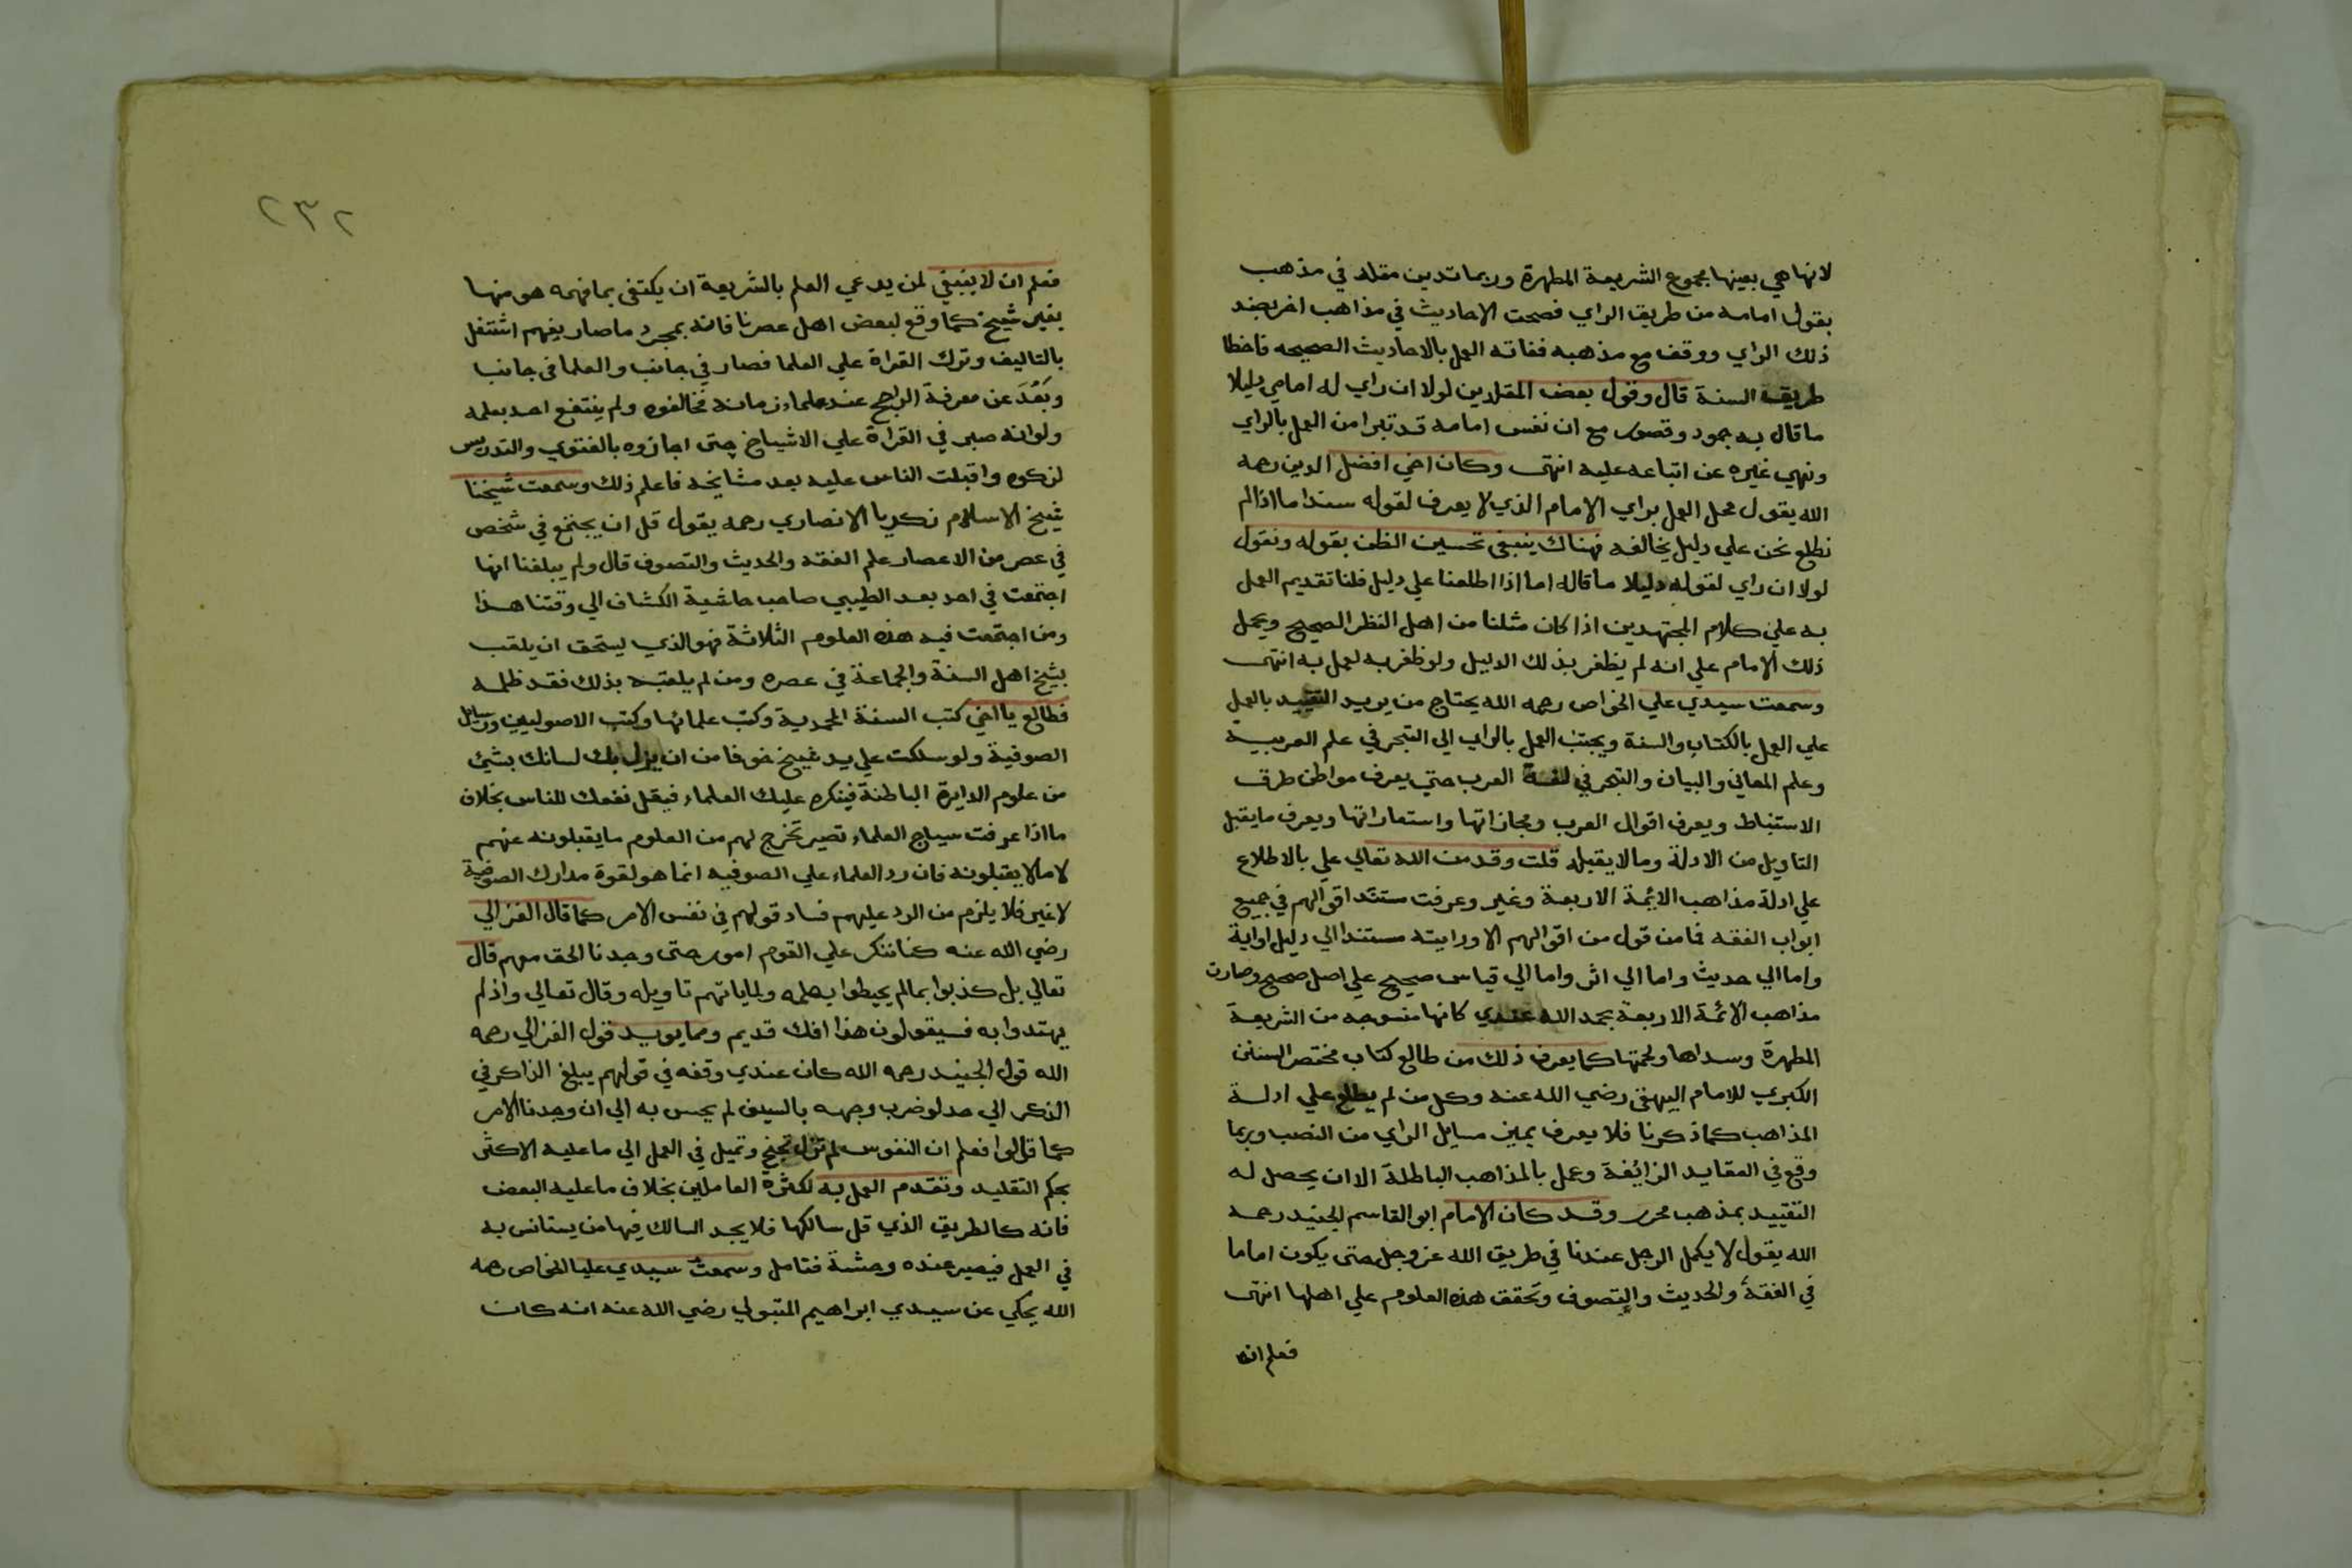 لانها هي بعينها مجموع الشريعة المطهرة وربما تدين مقلد في مذهب
بقول امامه من طريق الراي فصحت الاحاديث في مذاهب اخر بضد
ذلك الراي ووقف مع مذهبه ففاته العمل بالاحاديث الصحيحه فاخطا
طريق السنة قال وقول بعض المقلدين لولا ان راي له امامي دليلا
ما قال به جمود وقصور مع ان نفس امامه قد تبرا من العمل بالراي
ونهي غيره عن اتباعه عليه انتهى وكان اخي افضل الدين رحمه
الله يقول محل العمل براي الامام الذي لا يعرف لقوله سندا ما اذا لم
نطلع نحن علي دليل يخالفه فهناك ينبغي تحسين الظن بقوله ونقول
لولا ان راي لقوله دليلا ما قاله اما اذا اطلعنا علي دليل فلنا تقديم العمل
به علي كلام المجتهدين اذا كان مثلنا من اهل النظر الصحيح ويحمل
ذلك الامام علي انه لم يظفر بذلك الدليل ولو ظفر به لعمل به انتهى
وسمعت سيدي علي الخواص رحمه الله يحتاج من يريد التقييد بالعمل
علي العمل بالكتاب والسنة ويجتنب العمل بالراي الي التبحر في علم العربية
وعلم المعاني والبيان والتبحر في لغة العرب حتي يعرف مواطن طرق
الاستنباط ويعرف اقوال العرب ومجازاتها واستعاراتها ويعرف ما يقبل
التاويل من الادلة وما لا يقبله قلت وقد من الله تعالي علي بالاطلاع
علي ادلة مذاهب الايمة الاربعة وغير وعرفت مستند اقوالهم في جميع
ابواب الفقه فما من قول من اقوالهم الا ورايته مستندا الي دليل اواية
واما الي حديث واما الي اثر واما الي قياس صحيح علي اصل صحيح وصارت
مذاهب الائمة الاربعة بحمد الله عندي كانها منسوجه من الشريعة
المطهرة وسداها ولحمتها كما يعرف ذلك من طالع كتاب مختصر السنن
الكبري للامام البيهقي رضي الله عنه وكل من لم يطلع علي ادلة
المذاهب كما ذكرنا فلا يعرف يميز مسايل الراي من النصب وربما
وقع في العقايد الزائفة وعمل بالمذاهب الباطلة الا ان يحصل له
التقييد بمذهب محرر وقد كان الامام ابو القاسم الجنيد رحمه
الله يقول لا يكمل الرجل عندنا في طريق الله عز وجل حتى يكون اماما
في الفقه والحديث والتصوف وتحقق هذه العلوم علي اهلها انتهى
فعلم انه
٢٣٢
فعلم ان لا ينبغي لمن يدعي العلم بالشريعة ان يكتفى بما فهمه هو منها
بغير شيخ كما وقع لبعض اهل عصرنا فانه بمجرد ما صار يفهم اشتغل
بالتاليف وترك القراة علي العلما فصار في جانب والعلما فى جانب
وبَعُدَ عن معرفة الراجح عند علماء زمانه فخالفوه ولم ينتفع احد بعلمه
ولو انه صبر في القراة علي الاشياخ حتى اجازوه بالفتوي والتدريس
لزكوه واقبلت الناس عليه بعد مشايخه فاعلم ذلك وسمعت شيخنا
شيخ الاسلام زكريا الانصاري رحمه يقول قل ان يجتمع في شخص
في عصر من الاعصار علم الفقه والحديث والتصوف قال ولم يبلغنا انها
اجتمعت في احد بعد الطيبي صاحب حاشية الكشاف الي وقتنا هذا
ومن اجتمعت فيه هذه العلوم الثلاثة فهو الذي يستحق ان يلقب
بشيخ اهل السنة والجماعة في عصره ومن لم يلقبه بذلك فقد ظلمه
فطالع يا اخي كتب السنة المحمدية وكتب علمائها وكتب الاصوليين ورسايل
الصوفية ولو سلكت علي يد شيخ خوفا من ان يزل بك لسانك بشئ
من علوم الدايرة الباطنة فينكره عليك العلماء فيقل نفعك للناس بخلاف
ما اذا عرفت سياج العلماء تصير تخرج لهم من العلوم ما يقبلونه عنهم
لا ما لا يقبلونه فان رد العلماء علي الصوفيه انما هو لقوة مدارك الصوفية
لا غير فلا يلزم من الرد عليهم فساد قولهم في نفس الامر كما قال الغزالي
رضي الله عنه كنا ننكر علي القوم امور حتى وجدنا الحق معهم قال
تعالي بل كذبوا بما لم يحيطوا بعلمه ولما ياتهم تاويله وقال تعالي واذ لم
يهتدوا به فسيقولون هذا افك قديم ومما يويد قول الغزالي رحمه
الله قول الجنيد رحمه الله كان عندي وقفه في قولهم يبلغ الذاكر في
الذكر الي حد لو ضرب وجهه بالسيف لم يحس به الي ان وجدنا الامر
كما قالوا فعلم ان النفوس لم تزل تجنح وتميل في العمل الي ما عليه الاكثر
بحكم التقليد وتقدم العمل به لكثرة العاملين بخلاف ما عليه البعض
فانه كالطريق الذي قل سالكها فلا يجد السالك فيها من يستانس به
في العمل فيصير عنده وحشة فتامل وسمعت سيدي عليا الخواص رحمه
الله يحكي عن سيدي ابراهيم المتبولي رضي الله عنه انه كان